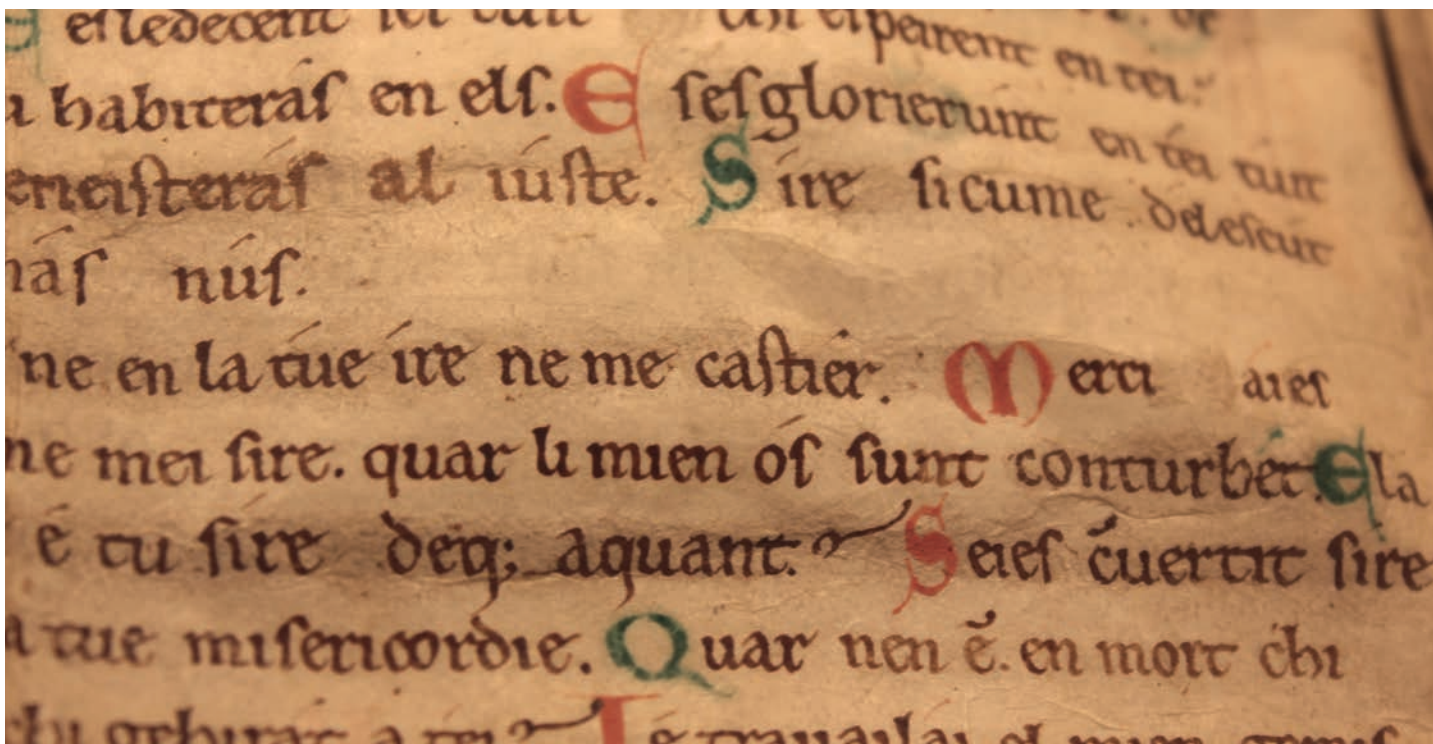 esledecent tei tuit chi espeirent en tei.
habiteras en els. E sesglorierunt en tei tuit
beneisteras al iúste. Sire sicume delescut
nás nús.
ne en la tue ire ne me castíer. Merci aies
me mei sire. quar li mien ós sunt conturbét. E la
é tu sire deq; aquant. Seies cuertit sire
tue misericordie. Quar nen ē. en mort chi
gehirat a tei Ie travailai el mien gemis